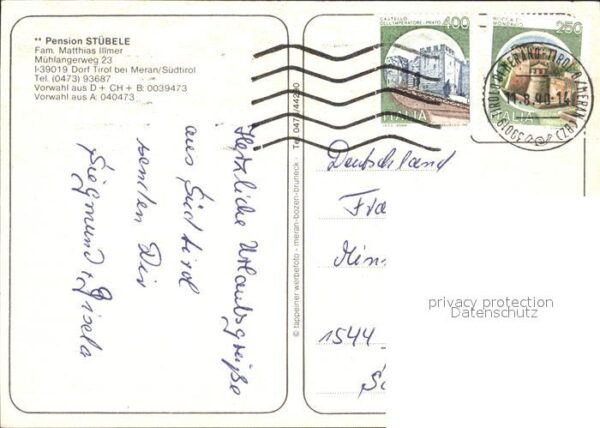 ** Pension STÜBELE
Fam. Matthias Illmer
Mühlangerweg 23
I-39019 Dorf Tirol bei Meran/Südtirol
Tel. (0473) 93687
Vorwahl aus D + CH + B: 0039473
Vorwahl aus A: 040473
Herzliche Urlaubsgrüße
aus Südtirol
senden Dir
Siegmund + Gisela
© tappeiner werbefoto - meran-bozen-bruneck - Tel. 0473/44250
CASTELLO
DELL'IMPERATORE - PRATO
400
ITALIA
ROCCA DI
MONDAVIO
250
ITALIA
11.8.90-14
Deutschland
Fra
Min
1544
privacy protection
Datenschutz